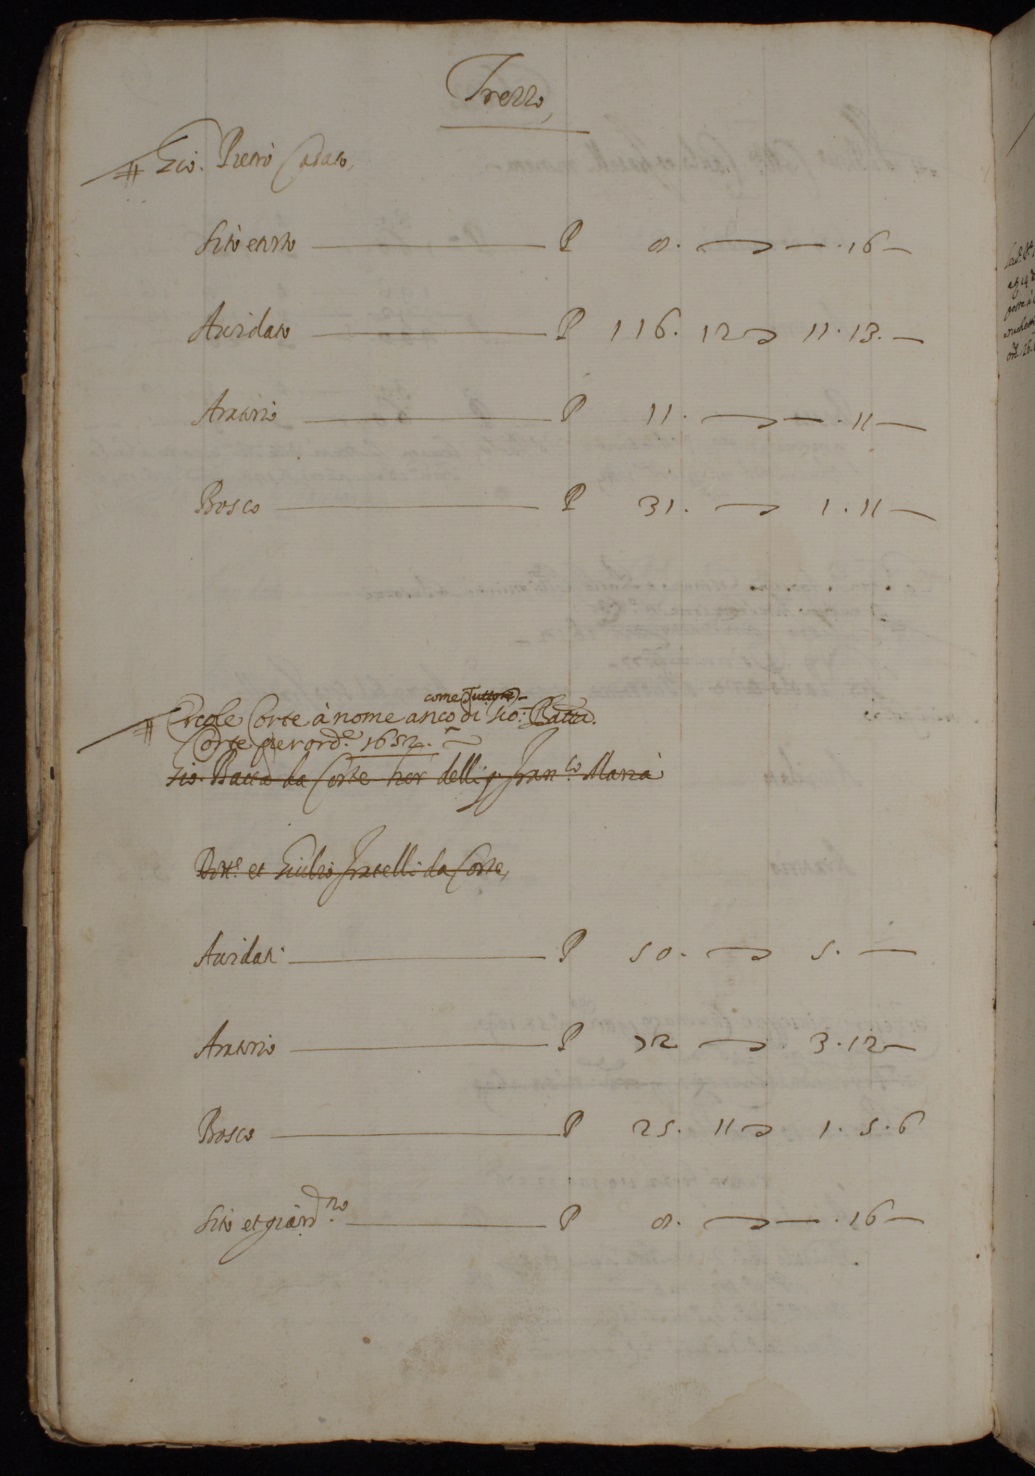 Trezzo,
Gio. Pietro Casato,
Sito et orto P 8. — . 16 —
Avidato P 116. 12 11. 13. —
Aratorio P 11. — . 11 —
Bosco P 31. 1. 11 —
come Tuttore
Ercole Corte à nome anco di Gio. Batta.
Corte per ord.e 1652.
Gio. Batta da Corte her delli q. Fran.co Maria
Dott.e et Giulio fratelli da Corte,
Avidati P 50. 5. —
Aratorio P 72 3. 12 —
Bosco P 25. 11 1. 5. 6
Sito et giard.no P 8. — . 16 —